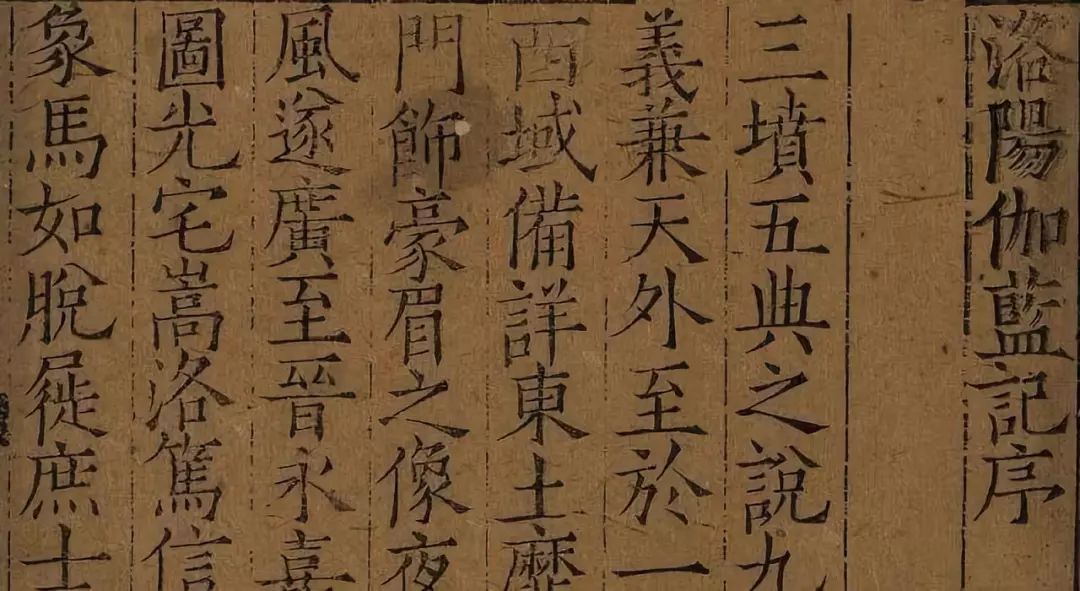 洛陽伽藍記序
三墳五典之說九
義兼天外至於一
西域備詳東土靡
門飾豪眉之像夜
風遂廣至晉永嘉
圖光宅嵩洛篤信
象馬如脫屣庶士